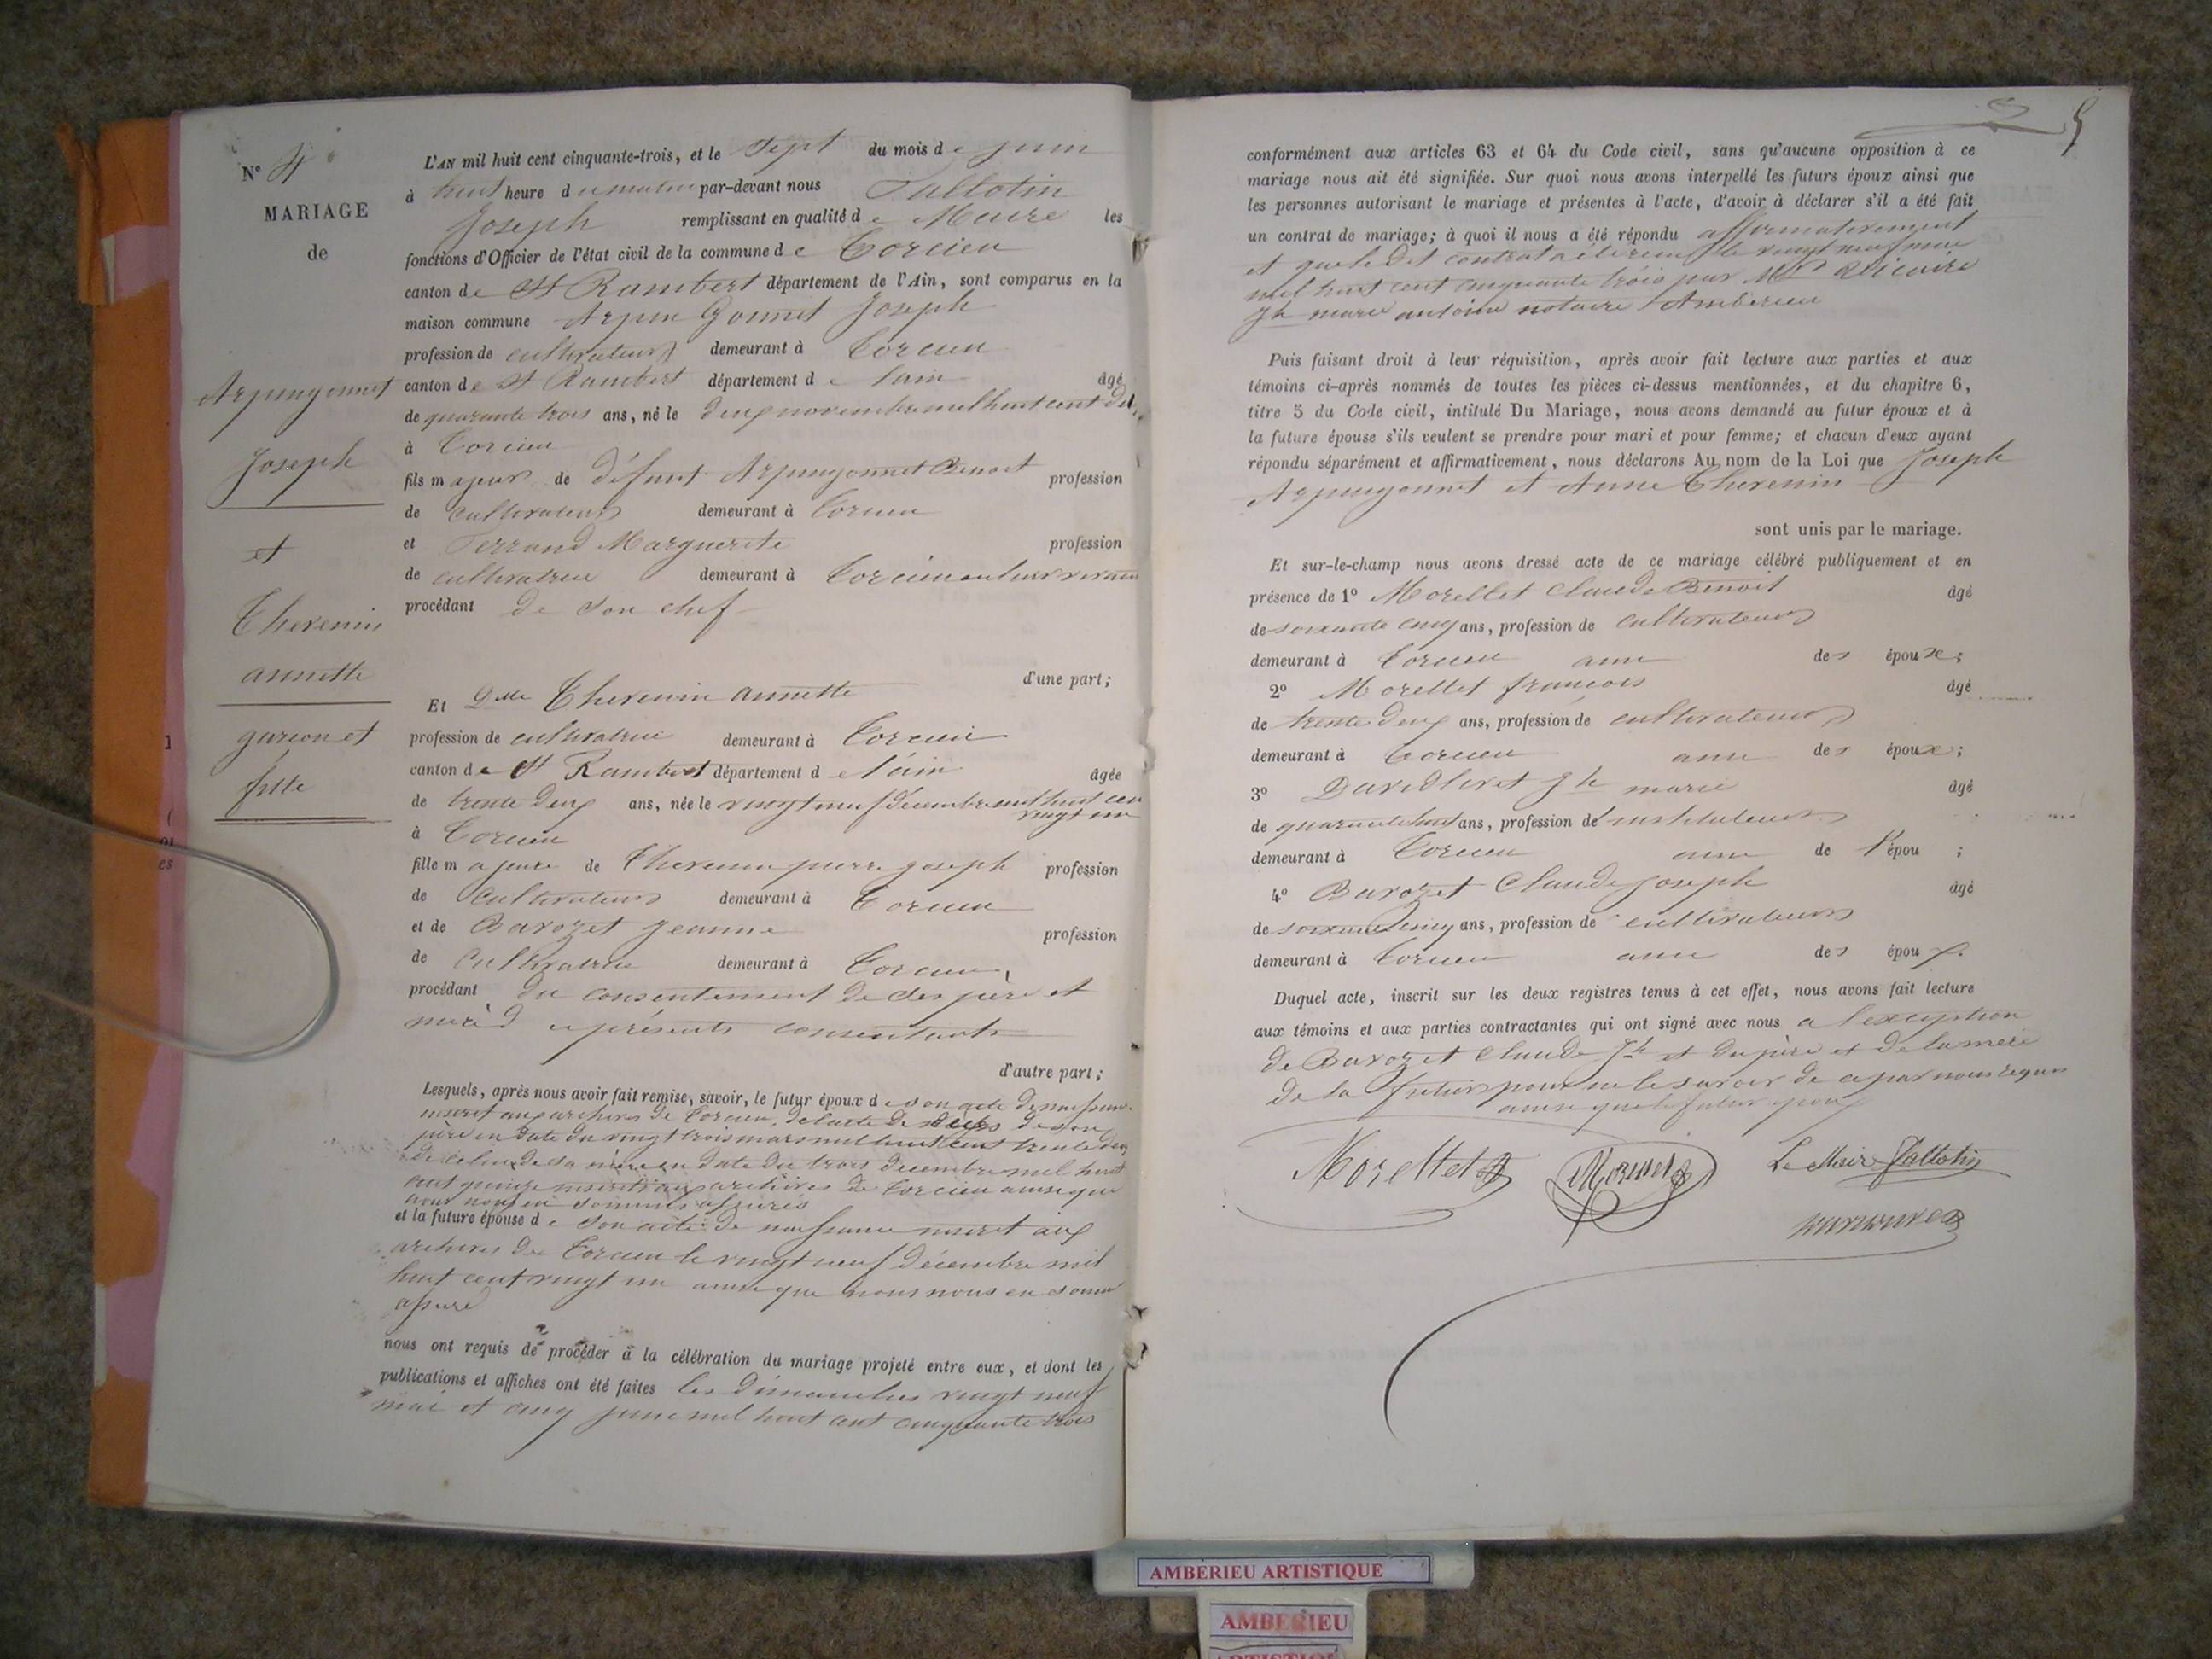 N° 4
MARIAGE
de
Arpingonnet
Joseph
et
Thevenin
annette
garcon et
fille
L'AN mil huit cent cinquante-trois, et le Sept du mois de juin
à huit heure du matin par-devant nous Tallotin
Joseph remplissant en qualité de Maire les
fonctions d'Officier de l'état civil de la commune de Torcieu
canton de St Rambert département de l'Ain, sont comparus en la
maison commune Arpin Gonnet Joseph
profession de cultivateur demeurant à Torcieu
canton de St Rambert département de lain âgé
de quarante trois ans, né le deux novembre mil huit cent dix
à Torcieu
fils majeur de défunt Arpingonnet Benoit profession
de cultivateur demeurant à Torcieu
et Ferrand Marguerite profession
de cultivatrice demeurant à Torcieu
procédant de son chef
d'une part;
Et Delle Thevenin annette
profession de cultivatrice demeurant à Torcieu
canton de St Rambert département de l'ain âgée
de trente deux ans, née le vingt neuf décembre mil huit cen
vingt un
à Torcieu
fille majeure de Thevenin pierre joseph profession
de cultivateur demeurant à Torcieu
et de Barozet jeanne profession
de cultivatrice demeurant à Torcieu,
procédant du consentement de ses père et
mère présents consentants
d'autre part;
Lesquels, après nous avoir fait remise, savoir, le futur époux de son acte de naissance
inscrit aux archives de Torcieu, de l'acte de décès de son
père en date du vingt trois mars mil huit cent trente deux
de celui de sa mère en date du trois décembre mil huit
cent quinze inscrit aux archives de Torcieu ainsi que
nous nous en sommes assurés
et la future épouse de son acte de naissance inscrit aux
archives de Torcieu le vingt neuf décembre mil
huit cent vingt un ainsi que nous nous en somme
assuré
nous ont requis de procéder à la célébration du mariage projeté entre eux, et dont les
publications et affiches ont été faites les dimanches vingt neuf
mai et cinq juin mil huit cent cinquante trois
5
conformément aux articles 63 et 64 du Code civil, sans qu'aucune opposition à ce
mariage nous ait été signifiée. Sur quoi nous avons interpellé les futurs époux ainsi que
les personnes autorisant le mariage et présentes à l'acte, d'avoir à déclarer s'il a été fait
un contrat de mariage; à quoi il nous a été répondu affirmativement
et que le dit contrat a été reçu le vingt neuf mai
mil huit cent cinquante trois par Me
jh marie antoine notaire Amberieu
Puis faisant droit à leur réquisition, après avoir fait lecture aux parties et aux
témoins ci-après nommés de toutes les pièces ci-dessus mentionnées, et du chapitre 6,
titre 5 du Code civil, intitulé Du Mariage, nous avons demandé au futur époux et à
la future épouse s'ils veulent se prendre pour mari et pour femme; et chacun d'eux ayant
répondu séparément et affirmativement, nous déclarons Au nom de la Loi que Joseph
Arpingonnet et Anne Thevenin
sont unis par le mariage.
Et sur-le-champ nous avons dressé acte de ce mariage célébré publiquement et en
présence de 1° Morellet Claude Benoit âgé
de soixante cinq ans, profession de cultivateur
demeurant à Torcieu ami des époux;
2° Morellet françois âgé
de trente deux ans, profession de cultivateur
demeurant à Torcieu ami des époux;
3° jh marie âgé
de quarante huit ans, profession de instituteur
demeurant à Torcieu ami de l'épou ;
4° Barozet Claude joseph âgé
de soixante cinq ans, profession de cultivateur
demeurant à Torcieu ami des époux.
Duquel acte, inscrit sur les deux registres tenus à cet effet, nous avons fait lecture
aux témoins et aux parties contractantes qui ont signé avec nous a l'exception
de Barozet Claude Jh et du père et de la mère
de la future pour ne le savoir de ce par nous requis
ainsi que le futur époux
Morellet Morellet Le Maire Tallotin
AMBÉRIEU ARTISTIQUE
AMBERIEU
ARTISTIQUE